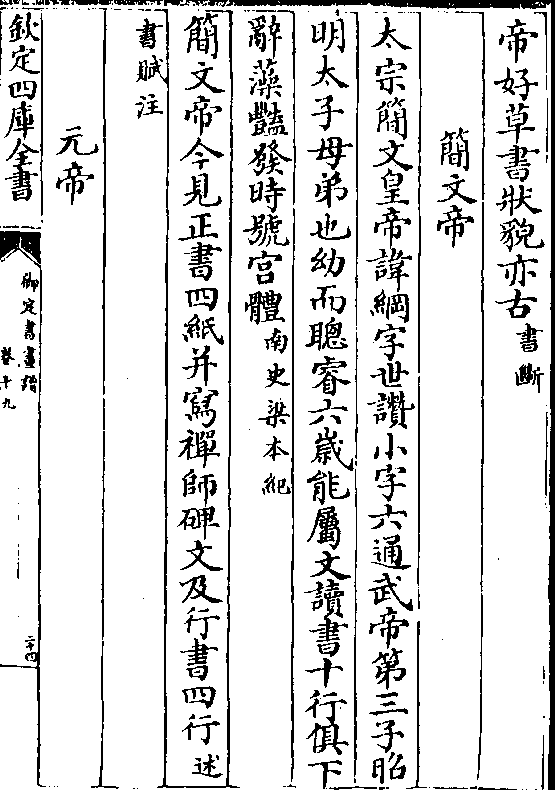 帝好草書狀貌亦古書斷
簡文帝
太宗簡文皇帝諱綱字世讚小字六通武帝第三子昭
明太子母弟也幼而聰睿六歲能屬文讀書十行俱下
辭藻豔發時號宮體南史梁本紀
簡文帝今見正書四紙并寫禪師碑文及行書四行述
書賦注
元帝
欽定四庫全書
御定書畫譜
卷十九
二十四